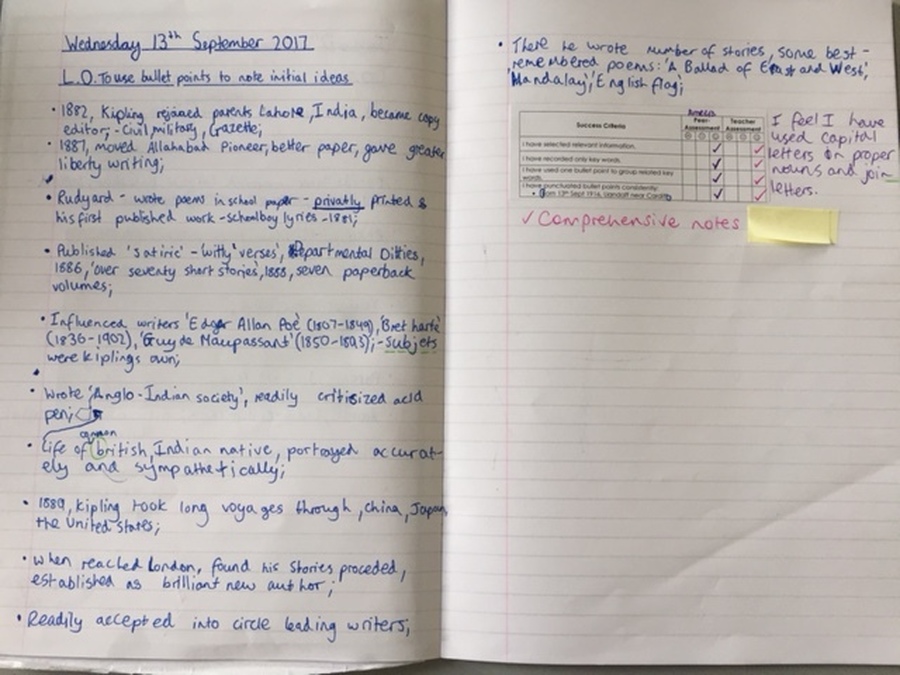 Wednesday 13th September 2017
L.O. To use bullet points to note initial ideas
• 1882, Kipling rejoined parents Lahore, India, became copy
editor, - Civil, military, Gazette;
• 1887, moved Allahabad Pioneer, better paper, gave greater
liberty writing;
• Rudyard - wrote poems in school paper - privatly printed &
his first published work - schoolboy lyrics - 1881;
• Published 'satiric' - 'witty' verses', Departmental Ditties,
1886, 'over seventy short stories', 1888, seven paperback
volumes;
• Influenced writers 'Edgar Allan Poe' (1807-1849), 'Bret harte'
(1836-1902), 'Guy de Maupassant' (1850-1893); - subjets
were kiplings own;
• Wrote 'Anglo-Indian society', readily critisized acid
pen;
common
• Life of british, Indian native, portrayed accurat-
ely and sympathetically;
• 1889, Kipling took long voyages through, China, Japan,
the United States;
• When reached London, found his stories proceded,
established as brilliant new author;
• Readily accepted into circle leading writers;
• There he wrote number of stories, some best-
remembered poems: 'A Ballad of East and West',
'Mandalay', 'English flag';
Success Criteria Peer-Assessment Teacher Assessment
I have selected relevant information.
I have recorded only key words.
I have used one bullet point to group related key
words.
I have punctuated bullet points consistently:
• 13th Sept 1916, Llandaff near Cardiff
I feel I have
used capital
letters on proper
nouns and join
letters.
✓ Comprehensive notes